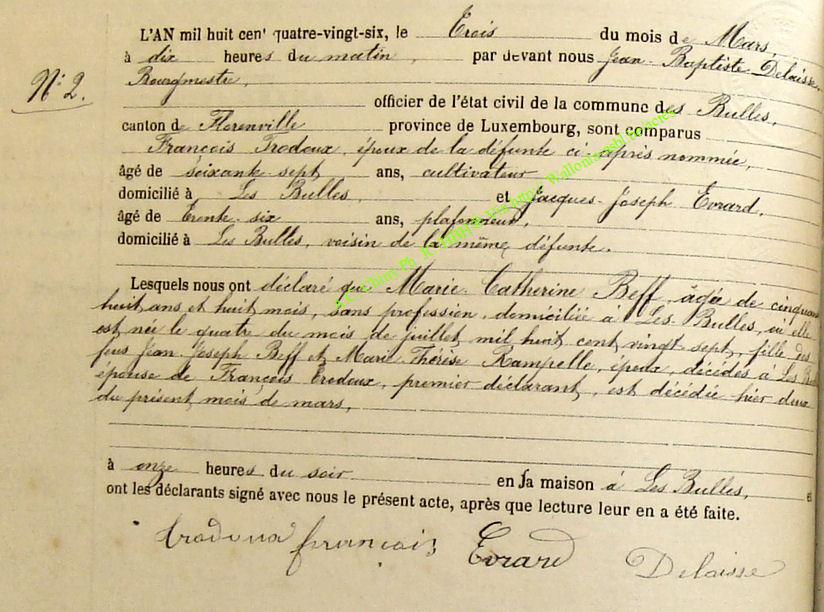 L'AN mil huit cent quatre-vingt-six, le Trois du mois de Mars,
à dix heures du matin, par devant nous Jean-Baptiste Delaisse,
Bourgmestre,
N° 2.
officier de l'état civil de la commune des Bulles,
canton de Florenville province de Luxembourg, sont comparus
François Trodoux, époux de la défunte ci-après nommée,
âgé de soixante sept ans, cultivateur
domicilié à Les Bulles, et Jacques-Joseph Evrard,
âgé de trente-six ans, plafonneur,
domicilié à Les Bulles, voisin de la même défunte.
Lesquels nous ont déclaré que Marie-Catherine Beff, âgée de cinquante
huit ans et huit mois, sans profession, domiciliée à Les Bulles, où elle
est née le quatre du mois de juillet mil huit cent vingt sept, fille des
feus Jean-Joseph Beff et Marie-Thérèse Rampelle, époux, décédés à Les Bulles
épouse de François Trodoux, premier déclarant, est décédée hier deux
du présent mois de mars,
à onze heures du soir en sa maison à Les Bulles, et
ont les déclarants signé avec nous le présent acte, après que lecture leur en a été faite.
trodoux françois Evrard Delaisse